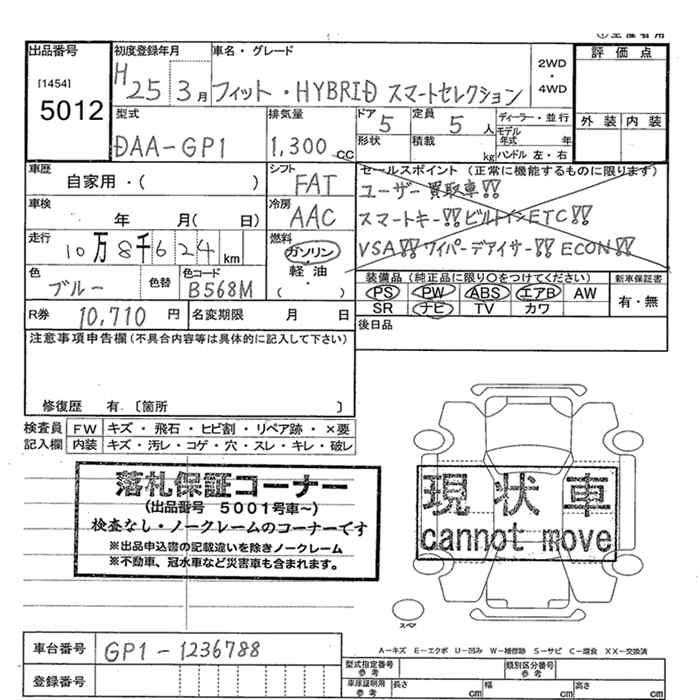 出品番号 初度登録年月 車名・グレード 評価点
[1454]
5012
H25 3月 フィット・HYBRID スマートセレクション
2WD・4WD
型式 排気量 ドア 定員 ディーラー・並行 外装 内装
DAA-GP1 1,300cc 5 5人
モデル年式 年
形状 積載 kg ハンドル 左・右
車歴 自家用・( ) シフト FAT
セールスポイント (正常に機能するものに限ります)
ユーザー買取車!!
車検 年 月( 日) 冷房 AAC
スマートキー!! ビルトインETC!!
走行 10万8千624km 燃料 ガソリン・軽油・( )
VSA!! ワイパーデアイサー!! ECON!!
色 ブルー 色替 色コード B568M
装備品(純正品に限り○をつけてください) 新車保証書
PS PW ABS エアB AW 有・無
SR ナビ TV カワ
R券 10,710円 名変期限 月 日
後日品
注意事項申告欄(不具合内容等は具体的に記入して下さい)
修復歴 有.〔箇所 〕
検査員記入欄
FW キズ・飛石・ヒビ割・リペア跡・×要
内装 キズ・汚レ・コゲ・穴・スレ・キレ・破レ
落札保証コーナー
(出品番号 5001号車〜)
検査なし・ノークレームのコーナーです
※出品申込書の記載違いを除きノークレーム
※不動車、冠水車など災害車も含まれます。
現状車
cannot move
スペア
A-キズ E-エクボ U-凹み W-補修跡 S-サビ C-腐食 XX-交換済
車台番号 GP1-1236788
型式指定番号 参考 類別区分番号 参考
登録番号
車庫証明用 参考 長さ cm 幅 cm 高さ cm